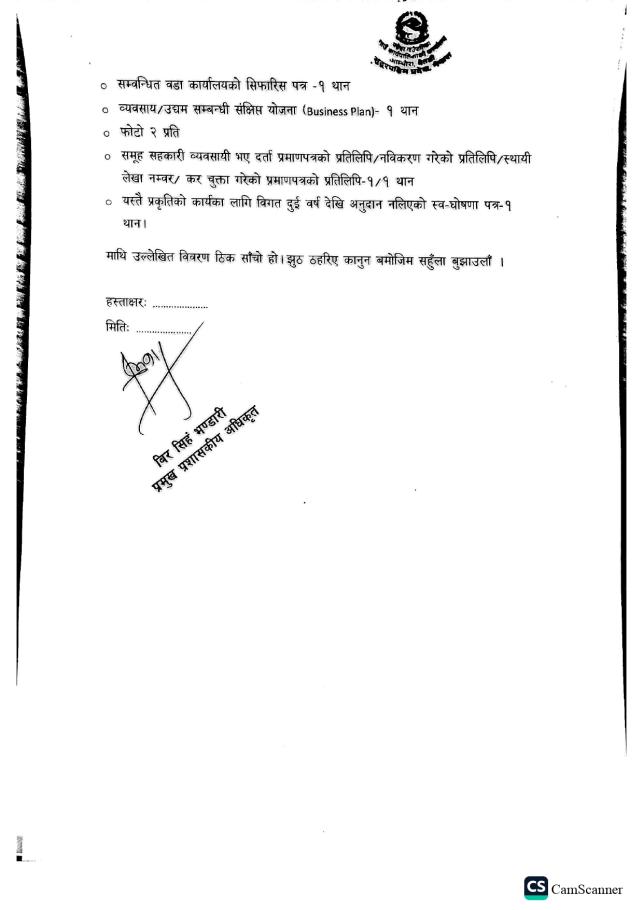 सुदूरपश्चिम प्रदेश, नेपाल
○ सम्वन्धित वडा कार्यालयको सिफारिस पत्र -१ थान
○ व्यवसाय/उद्यम सम्बन्धी संक्षिप्त योजना (Business Plan)- १ थान
○ फोटो २ प्रति
○ समूह सहकारी व्यवसायी भए दर्ता प्रमाणपत्रको प्रतिलिपि/नविकरण गरेको प्रतिलिपि/स्थायी
लेखा नम्वर/ कर चुक्ता गरेको प्रमाणपत्रको प्रतिलिपि-१/१ थान
○ यस्तै प्रकृतिको कार्यका लागि विगत दुई वर्ष देखि अनुदान नलिएको स्व-घोषणा पत्र-१
थान।
माथि उल्लेखित विवरण ठिक साँचो हो।झुठ ठहरिए कानुन बमोजिम सहुँला बुझाउलाँ ।
हस्ताक्षरः .....................
मितिः .....................
विर सिहं भण्डारी
प्रमुख प्रशासकीय अधिकृत
CS CamScanner